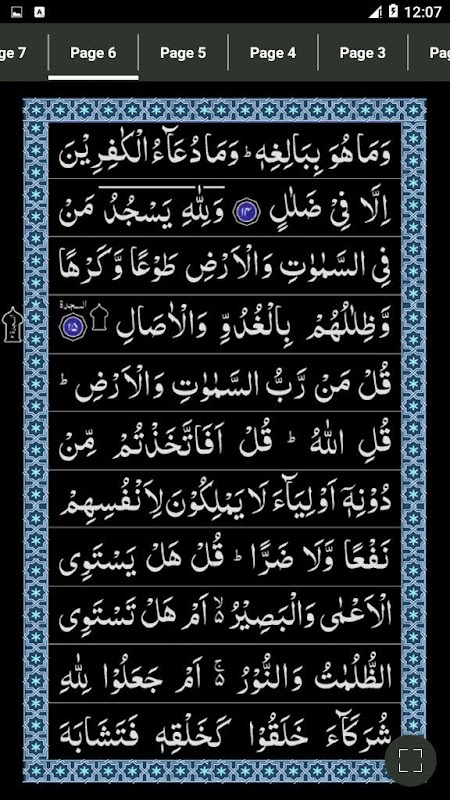 12:07
ge 7 Page 6 Page 5 Page 4 Page 3 Pag
وَمَا هُوَ بِبَالِغِهٖ ؕ وَمَا دُعَآءُ الْكٰفِرِيْنَ
اِلَّا فِيْ ضَلٰلٍ ۱۴ وَلِلّٰهِ يَسْجُدُ مَنْ
فِي السَّمٰوٰتِ وَالْاَرْضِ طَوْعًا وَّكَرْهًا
وَّظِلٰلُهُمْ بِالْغُدُوِّ وَالْاٰصَالِ السجدة ۱۵
قُلْ مَنْ رَّبُّ السَّمٰوٰتِ وَالْاَرْضِ ؕ
قُلِ اللّٰهُ ؕ قُلْ اَفَاتَّخَذْتُمْ مِّنْ
دُوْنِهٖٓ اَوْلِيَآءَ لَا يَمْلِكُوْنَ لِاَنْفُسِهِمْ
نَفْعًا وَّلَا ضَرًّا ؕ قُلْ هَلْ يَسْتَوِي
الْاَعْمٰى وَالْبَصِيْرُ ۙ اَمْ هَلْ تَسْتَوِي
الظُّلُمٰتُ وَالنُّوْرُ ۚ اَمْ جَعَلُوْا لِلّٰهِ
شُرَكَآءَ خَلَقُوْا كَخَلْقِهٖ فَتَشَابَهَ